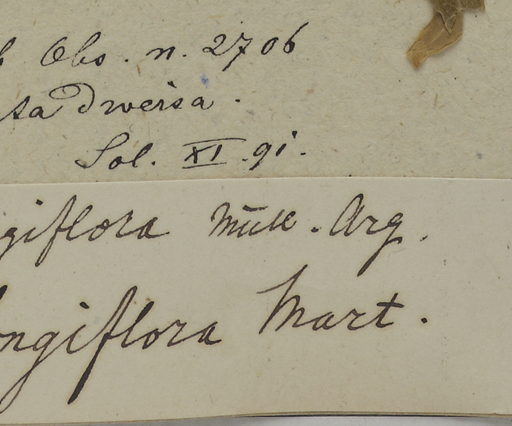 Obs. n. 2706
ta diversa.
Sol. XI. 91.
giflora Müll. Arg.
ongiflora Mart.